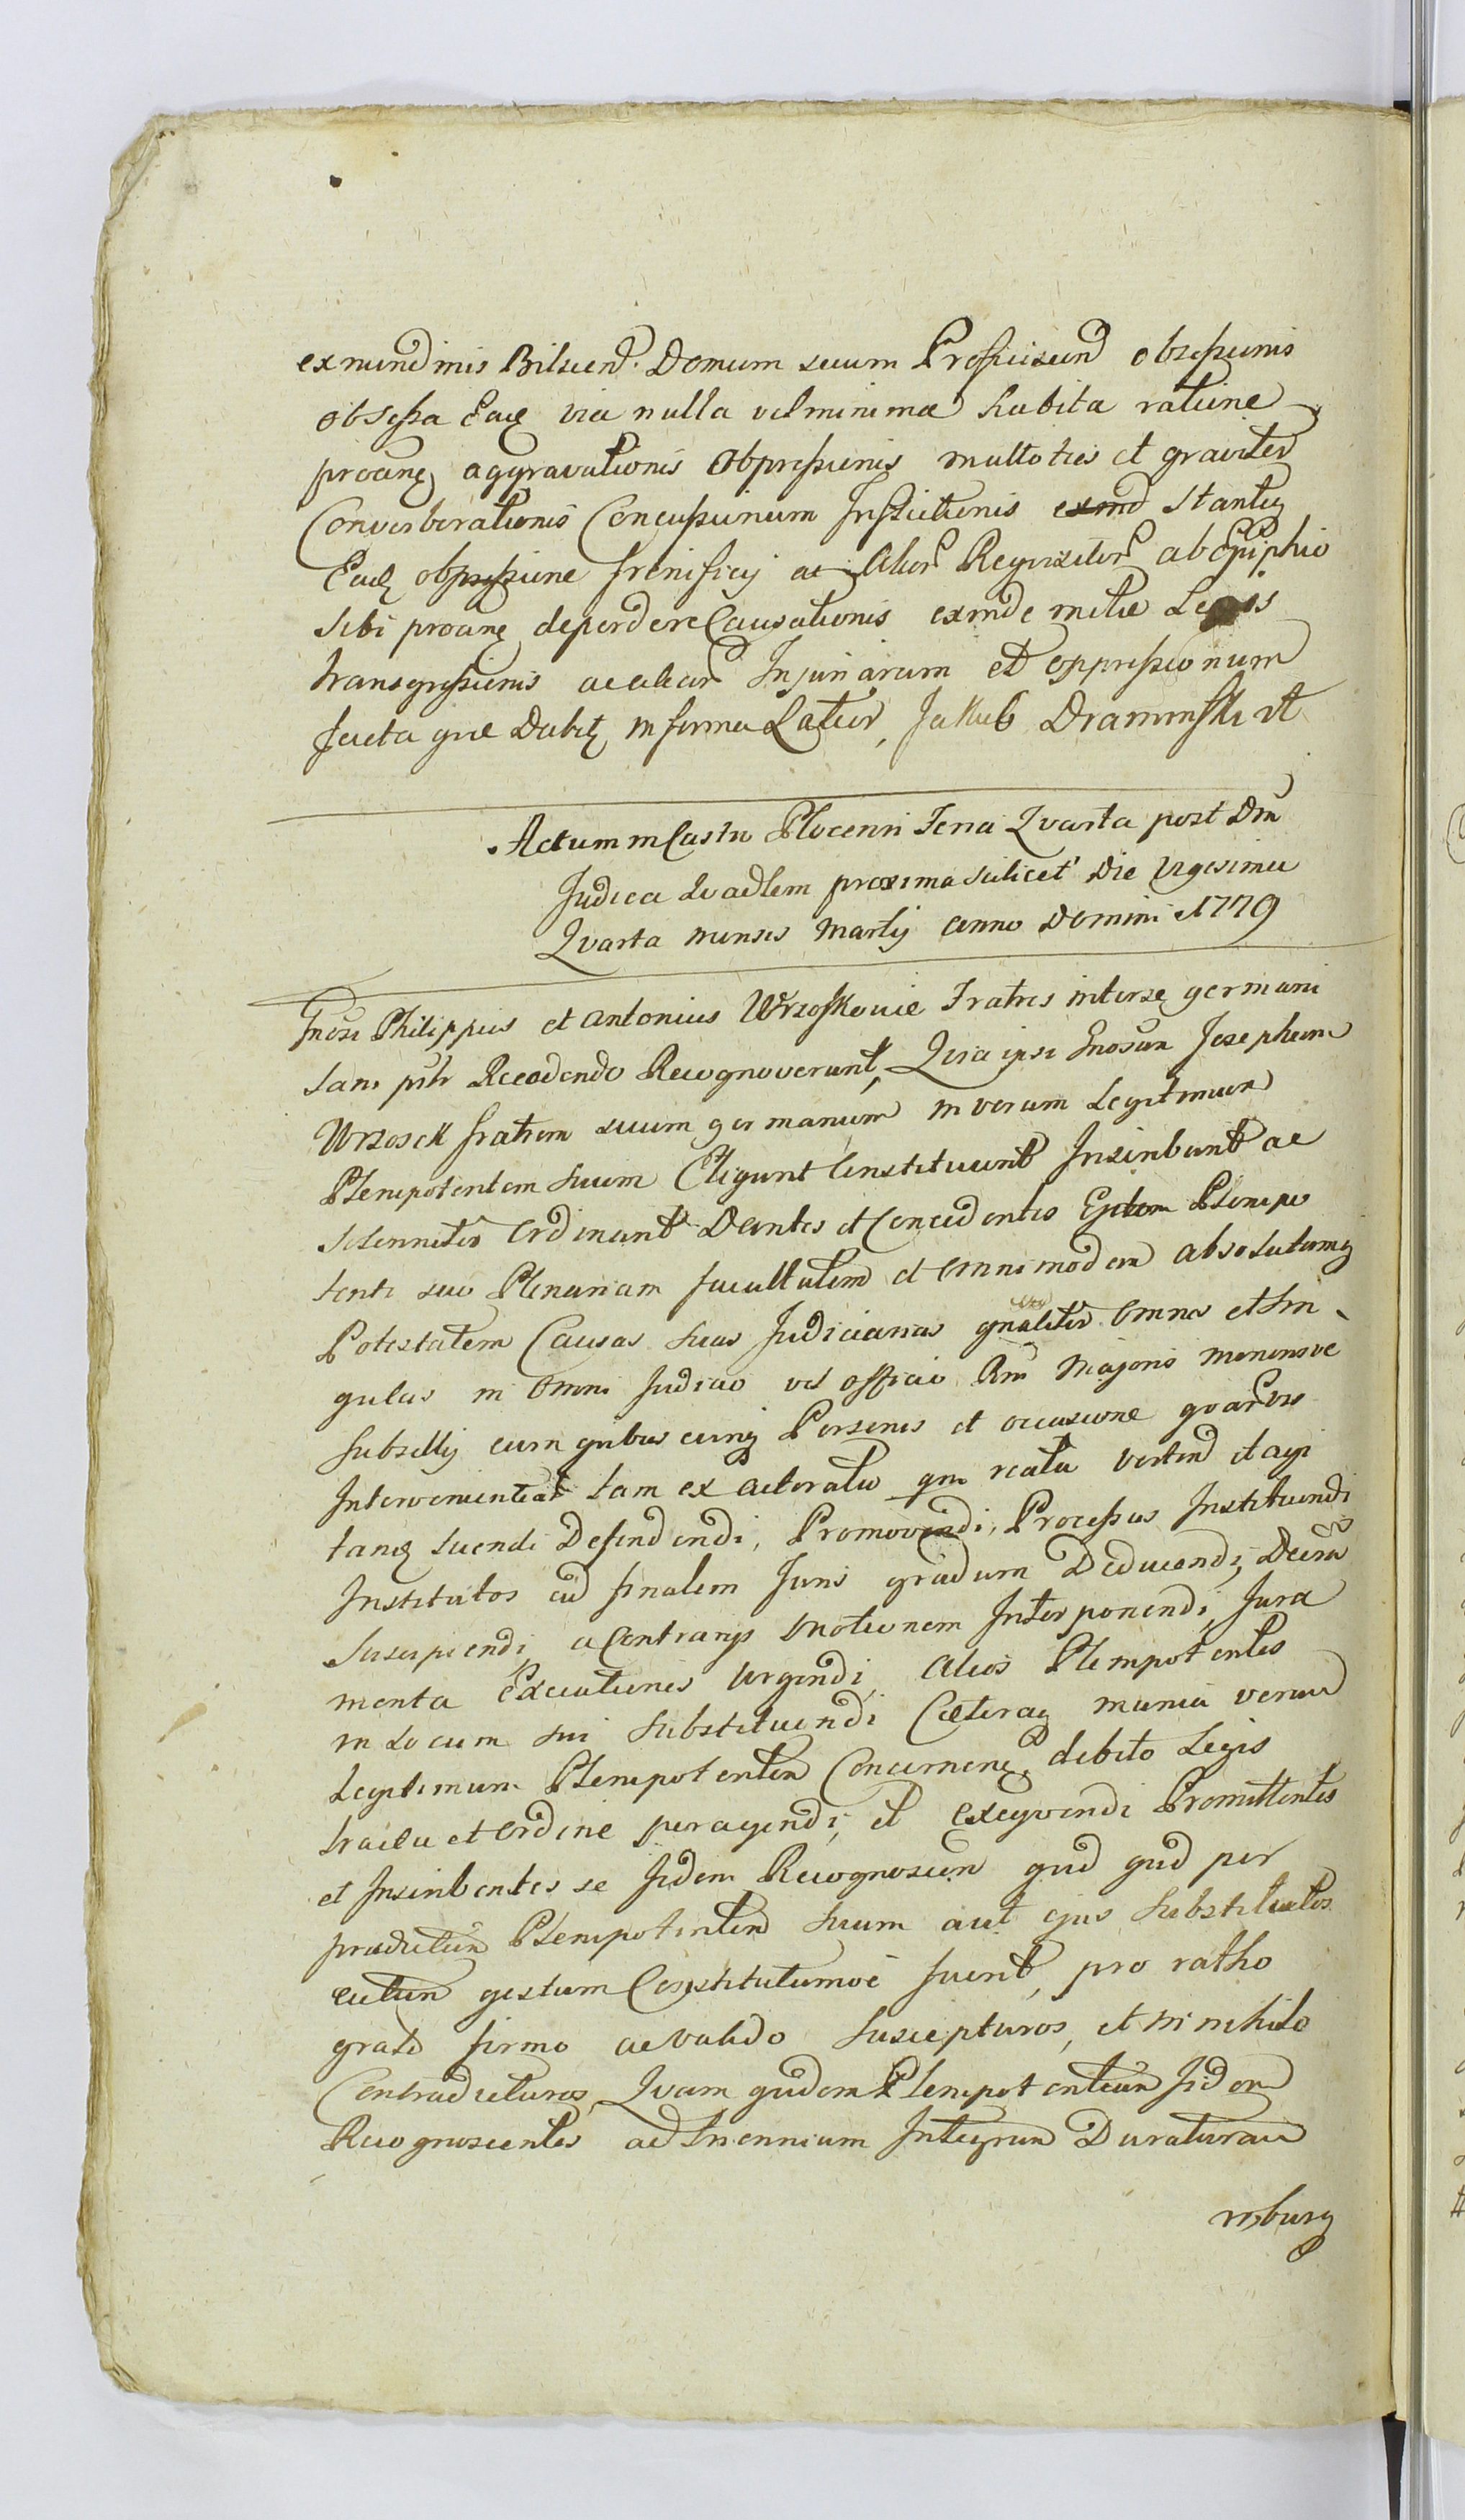 ex nundinis Bilscen. Domum suum Proficiscend obsessionis
obsessa Eaq via nulla vel minima habita ratione
proinq aggravationis Obpressionis multoties et graviter
Converberationis Concussionum Inflictionis stantq
Eadq obpressione frenificij ac Alior Requisitor ab Ephiphio
sibi proinq deperdere Causationis exinde metu Legis
transgressionis ac aliar Injuriarum et oppressionum
facta que Dabit in forma Latior, Jakub Draminski vt
Actum in Castro Plocensi Feria Qvarta post Dm
Judica Qvadlem proxima scilicet Die Vigesima
Qvarta mensis Martij Anno Domini 1779
Gnosi Philippus et Antonius Wrzoskowie Fratres inter se germani
sani pntr Recedendo Recognoverunt, Qvia ipsi Gnosum Josephum
Wrzosek fratrem suum germanum in verum Legitimum
Plenipotentem suum Eligunt Constituunt Inscribunt ac
solenniter Ordinant Dantes et Concedentes Ejdem Plenipo
tenti suo Plenariam facultatem et omnimodam absolutamq
Potestatem Causas suas Judiciarias gnaliter Omnes et sin
gulas in Omni Judicio vel officio Rni Majoris minorisve
subsellij cum quibuscunq Personis et occasione qvarvis
Intervenientiar tam ex actoratu qm reatu verten et agi
tanq tuendi Defendendi, Promovendi, Processus Instituendi
Institutos ad finalem Juris gradum Deducendi, Decra
suscipiendi, a Contrarijs motionem Interponendi, Jura
menta Executiones Urgendi, Alios Plenipotentes
in Locum sui substituendi Caeteraq munia verum
Legitimum Plenipotentem Concernen, debito Legis
tractu et Ordine peragendi, et Exeqvendi Promittentes
et Inscribentes se Iidem Recognoscen qud qud per
praedictum Plenipotentem suum aut ejus substitutos
actum gestum Constitutumve fuerit, pro ratho
grato firmo ac valido suscepturos, et in nihilo
Contradicturos, Qvam quidem Plenipotentiam Iidem
Recognoscentes ad triennium Integrum Duraturam
roburq